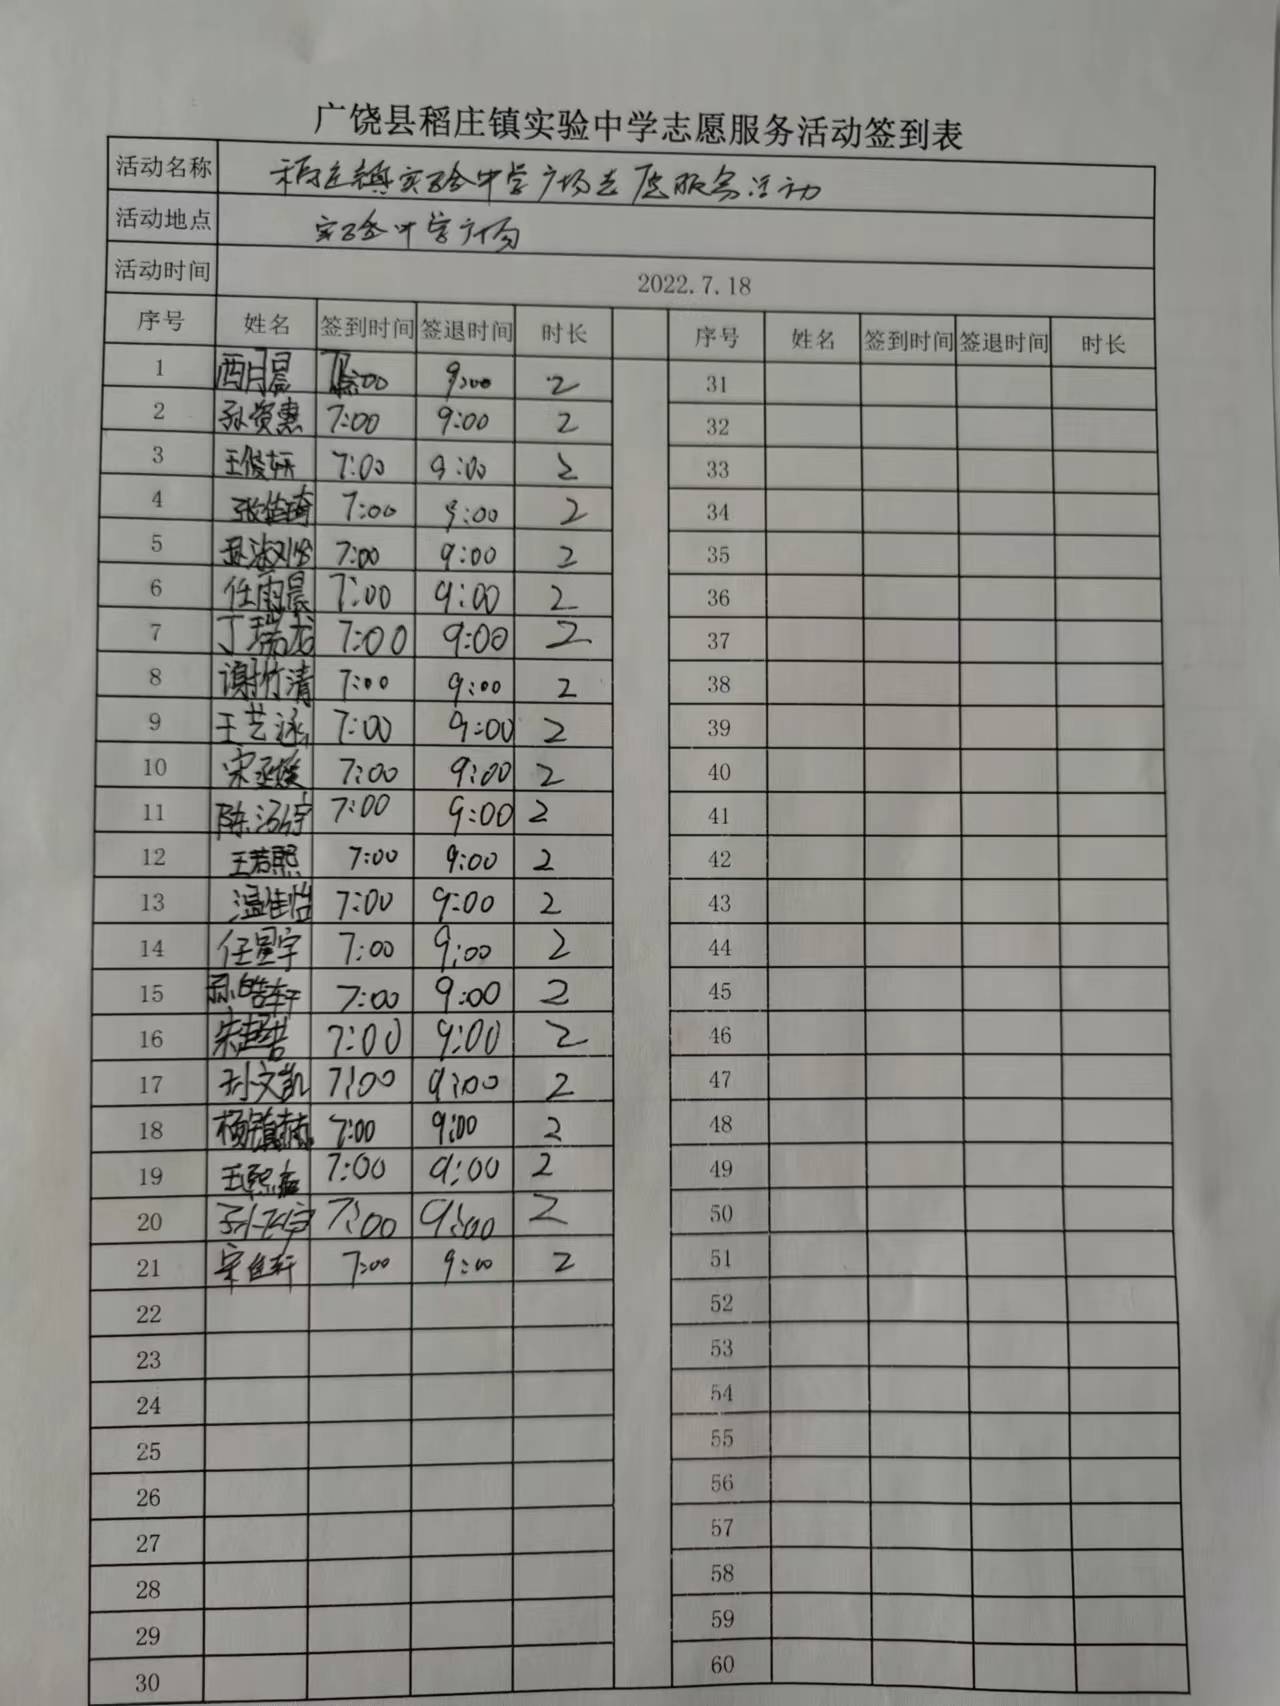 广饶县稻庄镇实验中学志愿服务活动签到表
活动名称 稻庄镇实验中学广场志愿服务活动
活动地点 实验中学广场
活动时间 2022.7.18
序号 姓名 签到时间 签退时间 时长 序号 姓名 签到时间 签退时间 时长
1 7:00 9:00 2 31
2 孙资惠 7:00 9:00 2 32
3 王俊妍 7:00 9:00 2 33
4 7:00 9:00 2 34
5 7:00 9:00 2 35
6 任雨晨 7:00 9:00 2 36
7 丁瑞龙 7:00 9:00 2 37
8 谢竹清 7:00 9:00 2 38
9 王艺涵 7:00 9:00 2 39
10 7:00 9:00 2 40
11 7:00 9:00 2 41
12 王若熙 7:00 9:00 2 42
13 温佳怡 7:00 9:00 2 43
14 任星宇 7:00 9:00 2 44
15 孙皓轩 7:00 9:00 2 45
16 7:00 9:00 2 46
17 孙文凯 7:00 9:00 2 47
18 7:00 9:00 2 48
19 7:00 9:00 2 49
20 7:00 9:00 2 50
21 7:00 9:00 2 51
22 52
23 53
24 54
25 55
26 56
27 57
28 58
29 59
30 60